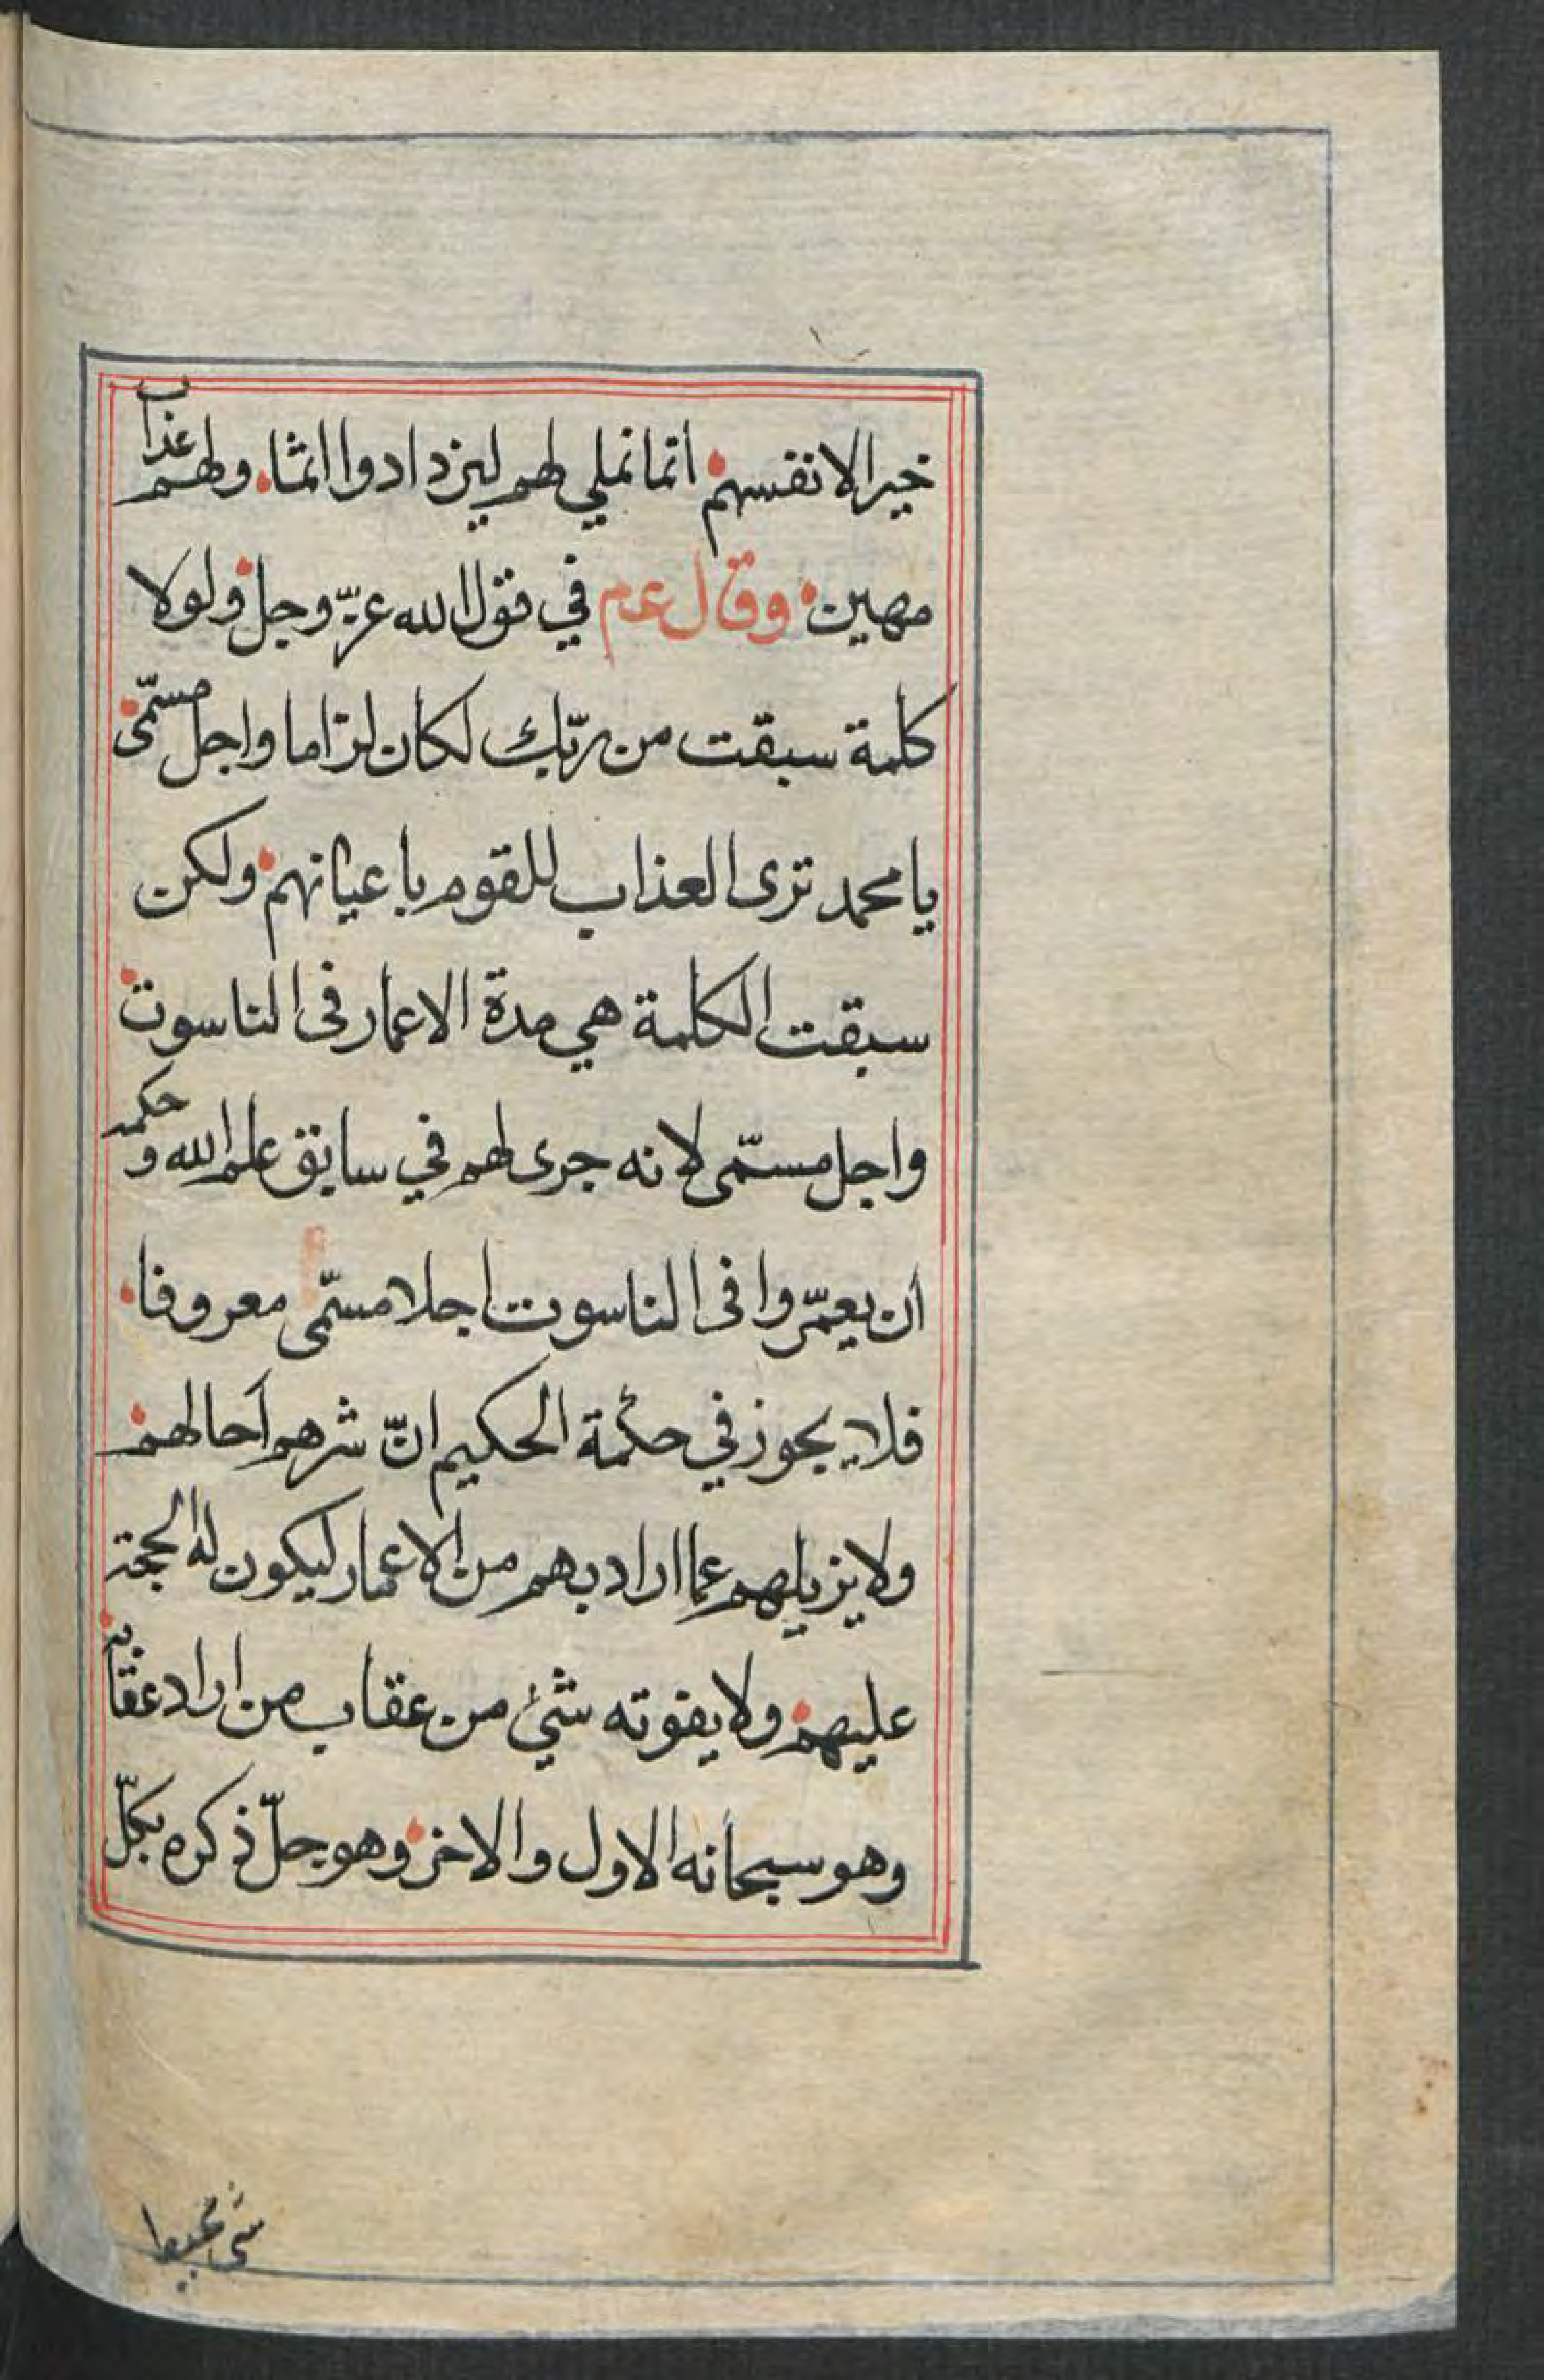 خيرا لانفسهم انما نملي لهم ليزدادوا اثما ولهم عذاب
مهين وقال عم في قول الله عزّ وجل ولولا
كلمة سبقت من ربّك لكان لزاما واجل مسمّى
يا محمد ترى العذاب للقوم باعيانهم ولكن
سبقت الكلمة هي مدة الاعمار في الناسوت
واجل مسمّى لانه جرى لهم في سابق علم الله وحكمه
أن يعمّروا في الناسوت اجلا مسمّى معروفا
فلا يجوز في حكمة الحكيم انّ شرهم احالهم
ولا يزيلهم عما اراد بهم من الاعمار ليكون له الحجة
عليهم ولا يفوته شئ من عقاب من اراد عقابه
وهو سبحانه الاول والاخر وهو جلّ ذكره بكلّ
شي محيطا